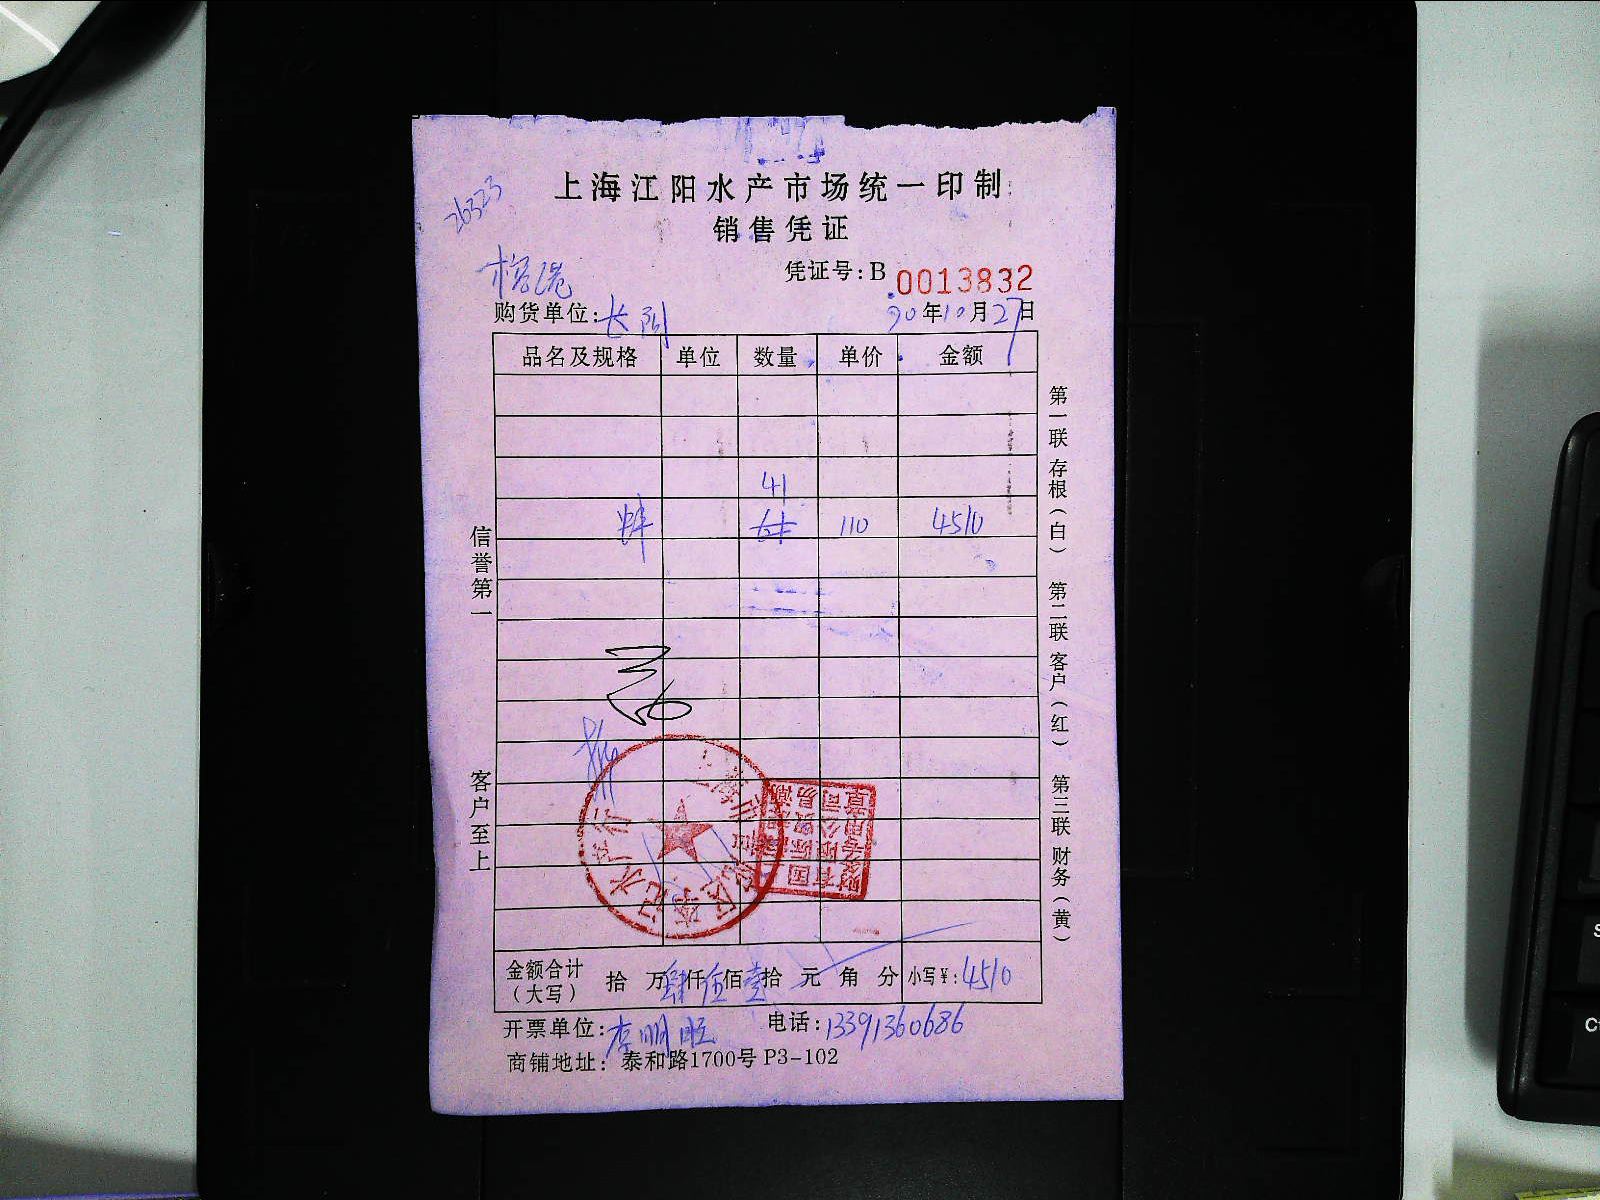 上海江阳水产市场统一印制
26323
销售凭证
凭证号:B 0013832
购货单位:长阳
年10月27日
品名及规格 单位 数量 单价 金额
41
110 4510
信誉第一
客户至上
第一联 存根(白) 第二联 客户(红) 第三联 财务(黄)
金额合计(大写) 拾 万肆仟伍佰壹拾 元 角 分 小写¥:4510
开票单位:李明旺 电话:13391360686
商铺地址: 泰和路1700号 P3-102